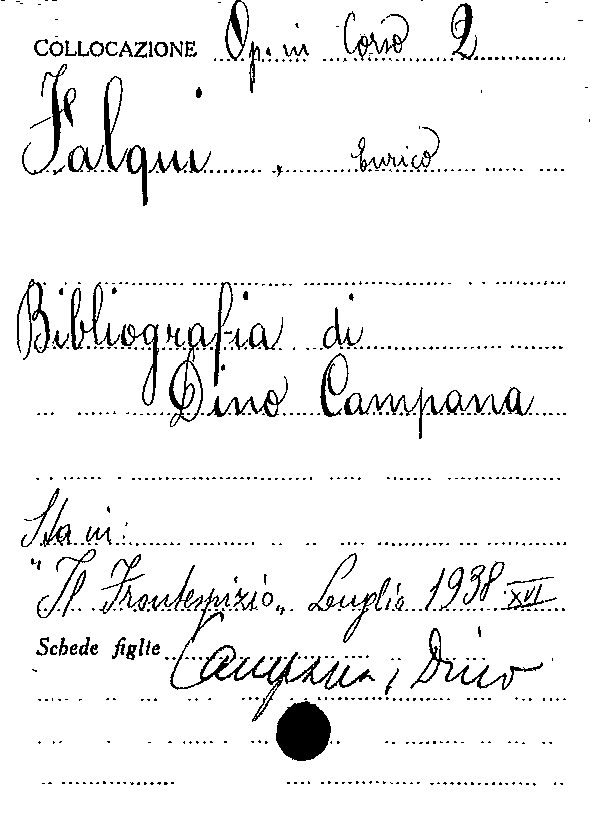 COLLOCAZIONE Op. in Corso 2
Falqui, Enrico
Bibliografia di
Dino Campana
Sta in:
"Il Frontespizio„ Luglio 1938 XVI
Schede figlie Campana, Dino